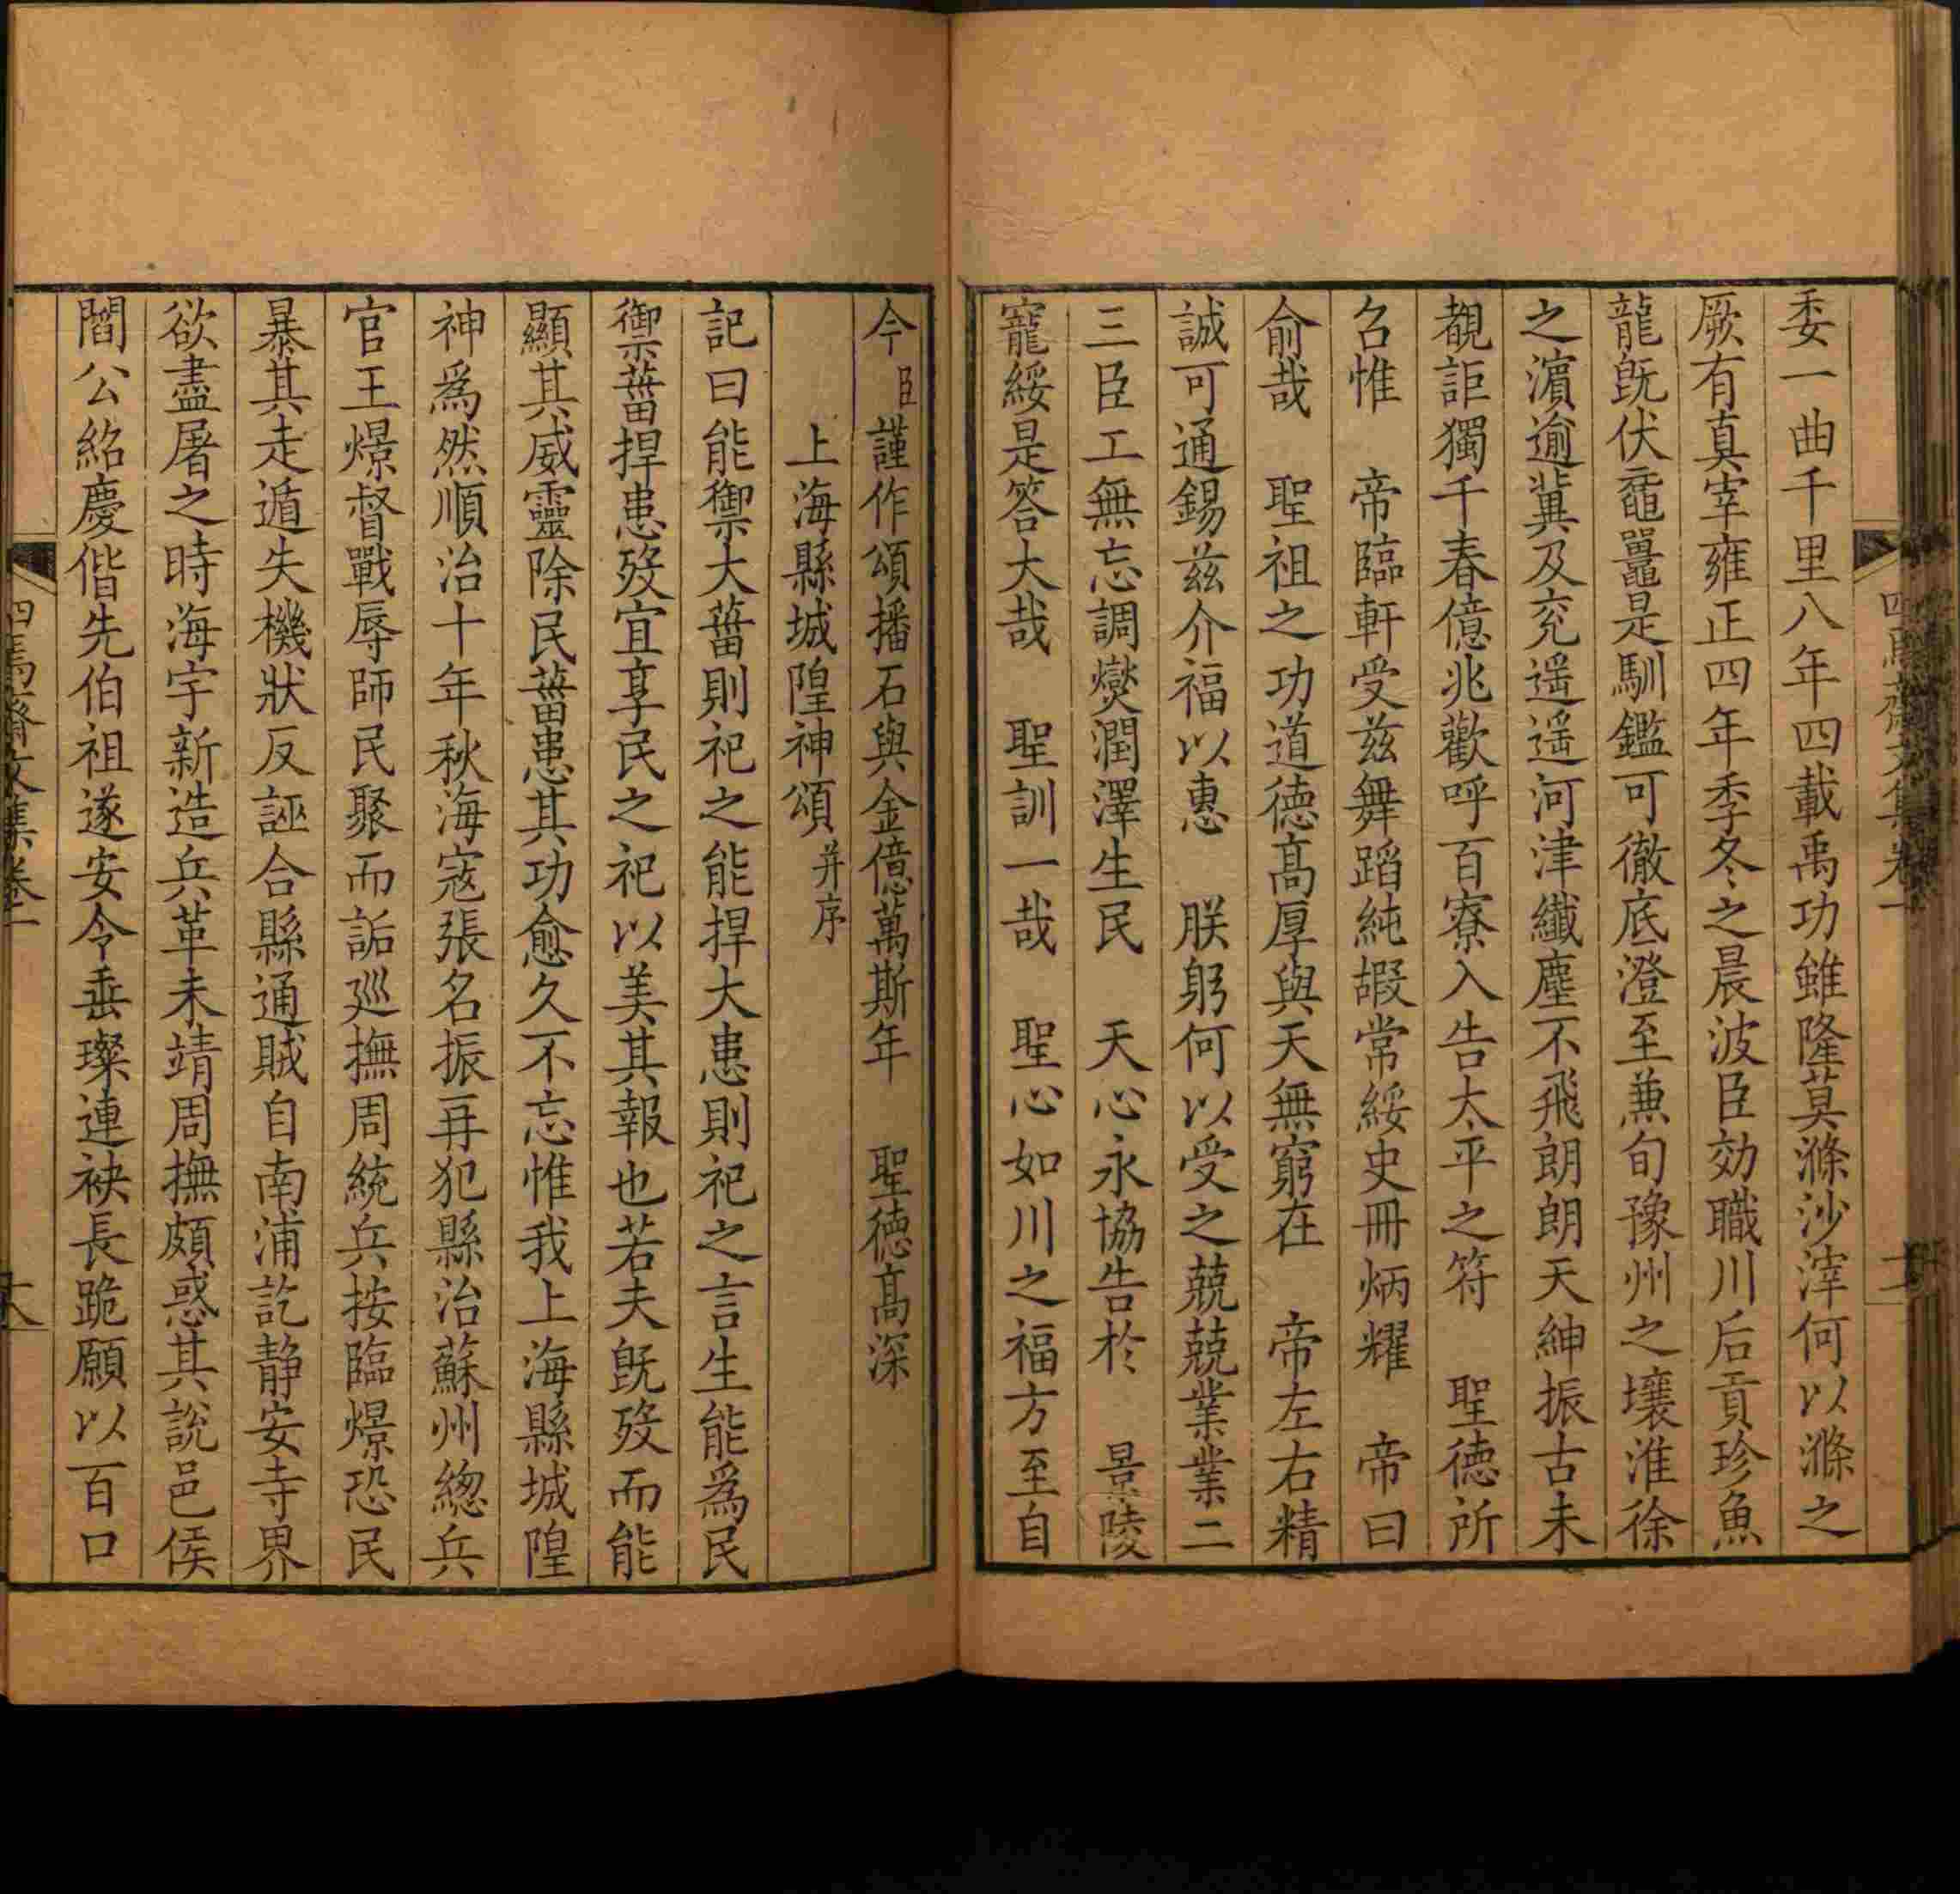 委一曲千里八年四載禹功雖隆莫滌沙滓何以滌之
厥有真宰雍正四年季冬之晨波臣効職川后貢珍魚
龍既伏黿鼉是馴鑑可徹底澄至兼旬豫州之壤淮徐
之濵逾冀及兖遥遥河津纖塵不飛朗朗天紳振古未
覩詎獨千春億兆歡呼百寮入告太平之符　聖徳所
召惟　帝臨軒受兹舞蹈純嘏常綏史冊炳耀　帝曰
俞哉　聖祖之功道徳髙厚與天無窮在　帝左右精
誠可通錫兹介福以惠　朕躬何以受之兢兢業業二
三臣工無忘調燮潤澤生民　天心永協告於　景陵
寵綏是答大哉　聖訓一哉　聖心如川之福方至自
今臣謹作頌播石與金億萬斯年　聖徳髙深
上海縣城隍神頌并序
記曰能禦大菑則祀之能捍大患則祀之言生能爲民
禦菑捍患歿宜享民之祀以美其報也若夫既歿而能
顯其威靈除民菑患其功愈久不忘惟我上海縣城隍
神爲然順治十年秋海寇張名振再犯縣治蘇州緫兵
官王燝督戰辱師民聚而詬廵撫周統兵按臨燝恐民
暴其走遁失機狀反誣合縣通賊自南浦訖静安寺界
欲盡屠之時海宇新造兵革未靖周撫頗惑其說邑侯
閻公紹慶偕先伯祖遂安令垂璨連袂長跪願以百口
四焉齋文集卷一